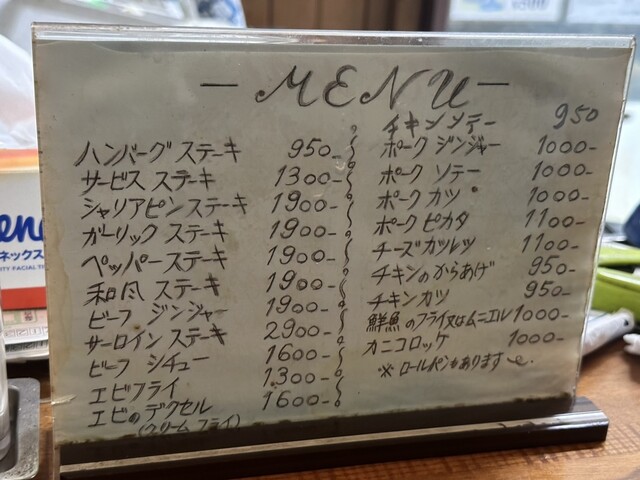 — MENU —
ハンバーグ ステーキ 950-
サービス ステーキ 1300-
シャリアピンステーキ 1900-
ガーリック ステーキ 1900-
ペッパーステーキ 1900-
和风 ステーキ 1900-
ビーフ ジンジャー 1900-
サーロインステーキ 2900-
ビーフ シチュー 1600-
エビフライ 1300-
エビのデクセル 1600-
(クリーム フライ)
チキンソテー 950
ポーク ジンジャー 1000-
ポーク ソテー 1000-
ポーク カツ 1000-
ポーク ピカタ 1100-
チーズカツレツ 1100-
チキンのからあげ 950-
チキンカツ 950-
鮮魚のフライ又はムニエル 1000-
カニコロッケ 1000-
※ ロールパンもあります
ネックス